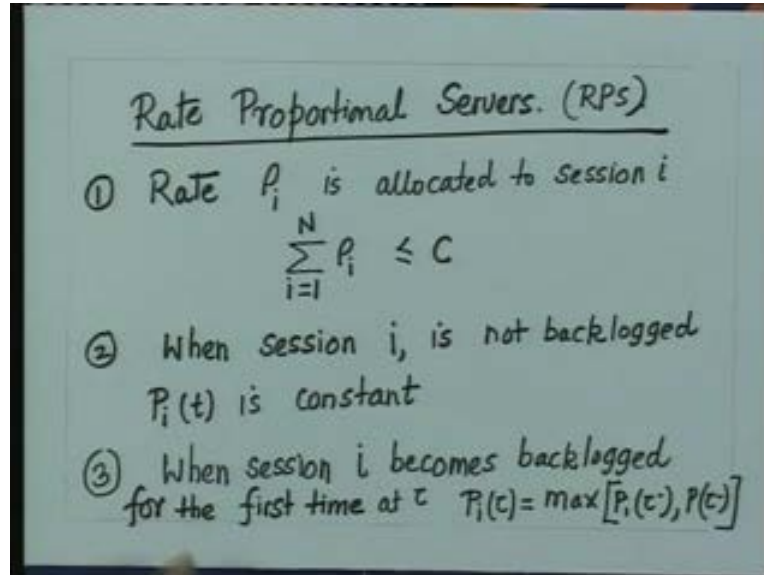 Rate Proportional Servers. (RPS)
① Rate ρᵢ is allocated to session i
N
∑ ρᵢ ≤ C
i=1
② When session i, is not backlogged
Pᵢ(t) is constant
③ When session i becomes backlogged
for the first time at τ Pᵢ(τ) = max[Pᵢ(τ⁻), P(τ⁻)]